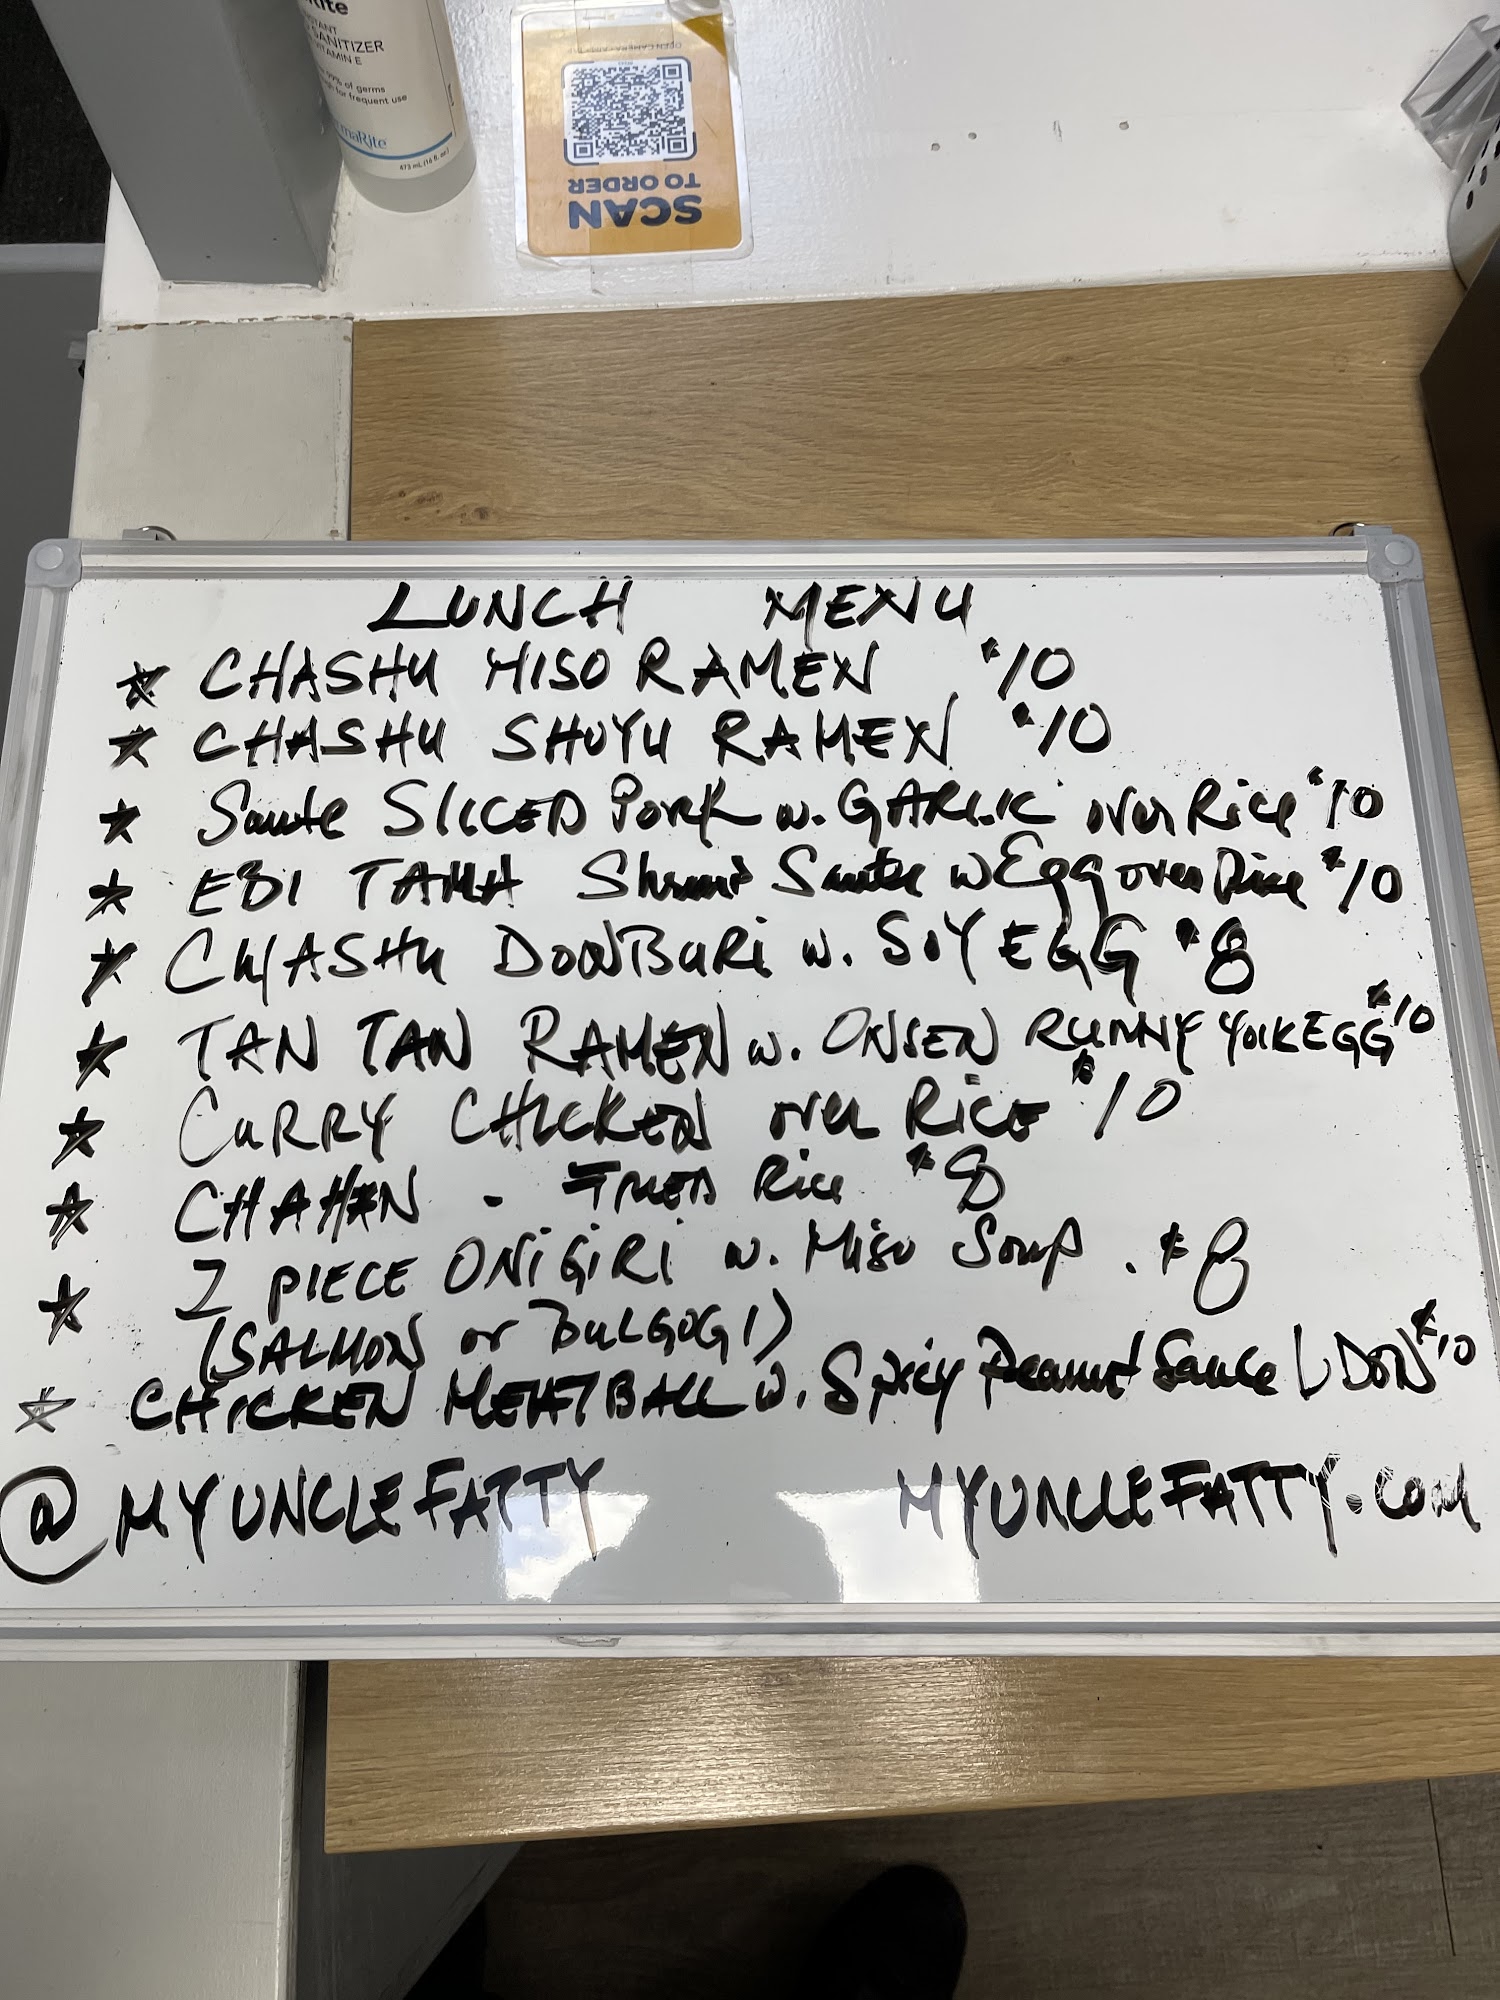 SANITIZER
VITAMIN E
99% of germs
for frequent use
maRite
473 mL (16 fl. oz)
SCAN
TO ORDER
LUNCH MENU
☆ CHASHU MISO RAMEN $10
☆ CHASHU SHOYU RAMEN $10
☆ Saute SLICED PORK w. GARLIC over Rice $10
☆ EBI TAMA Shrimp Saute w Egg over Rice $10
☆ CHASHU DONBURi w. SOY EGG $8
☆ TAN TAN RAMEN w. ONSEN RUNNY YOLK EGG $10
☆ CURRY CHICKEN over RiCE $10
☆ CHAHAN - FRIED Rice $8
☆ 2 PIECE ONiGiRi w. Miso Soup. $8
(SALMON or BULGOGI)
☆ CHICKEN MEATBALL w. Spicy Peanut Sauce DON $10
@MYUNCLEFATTY MYUNCLEFATTY.com